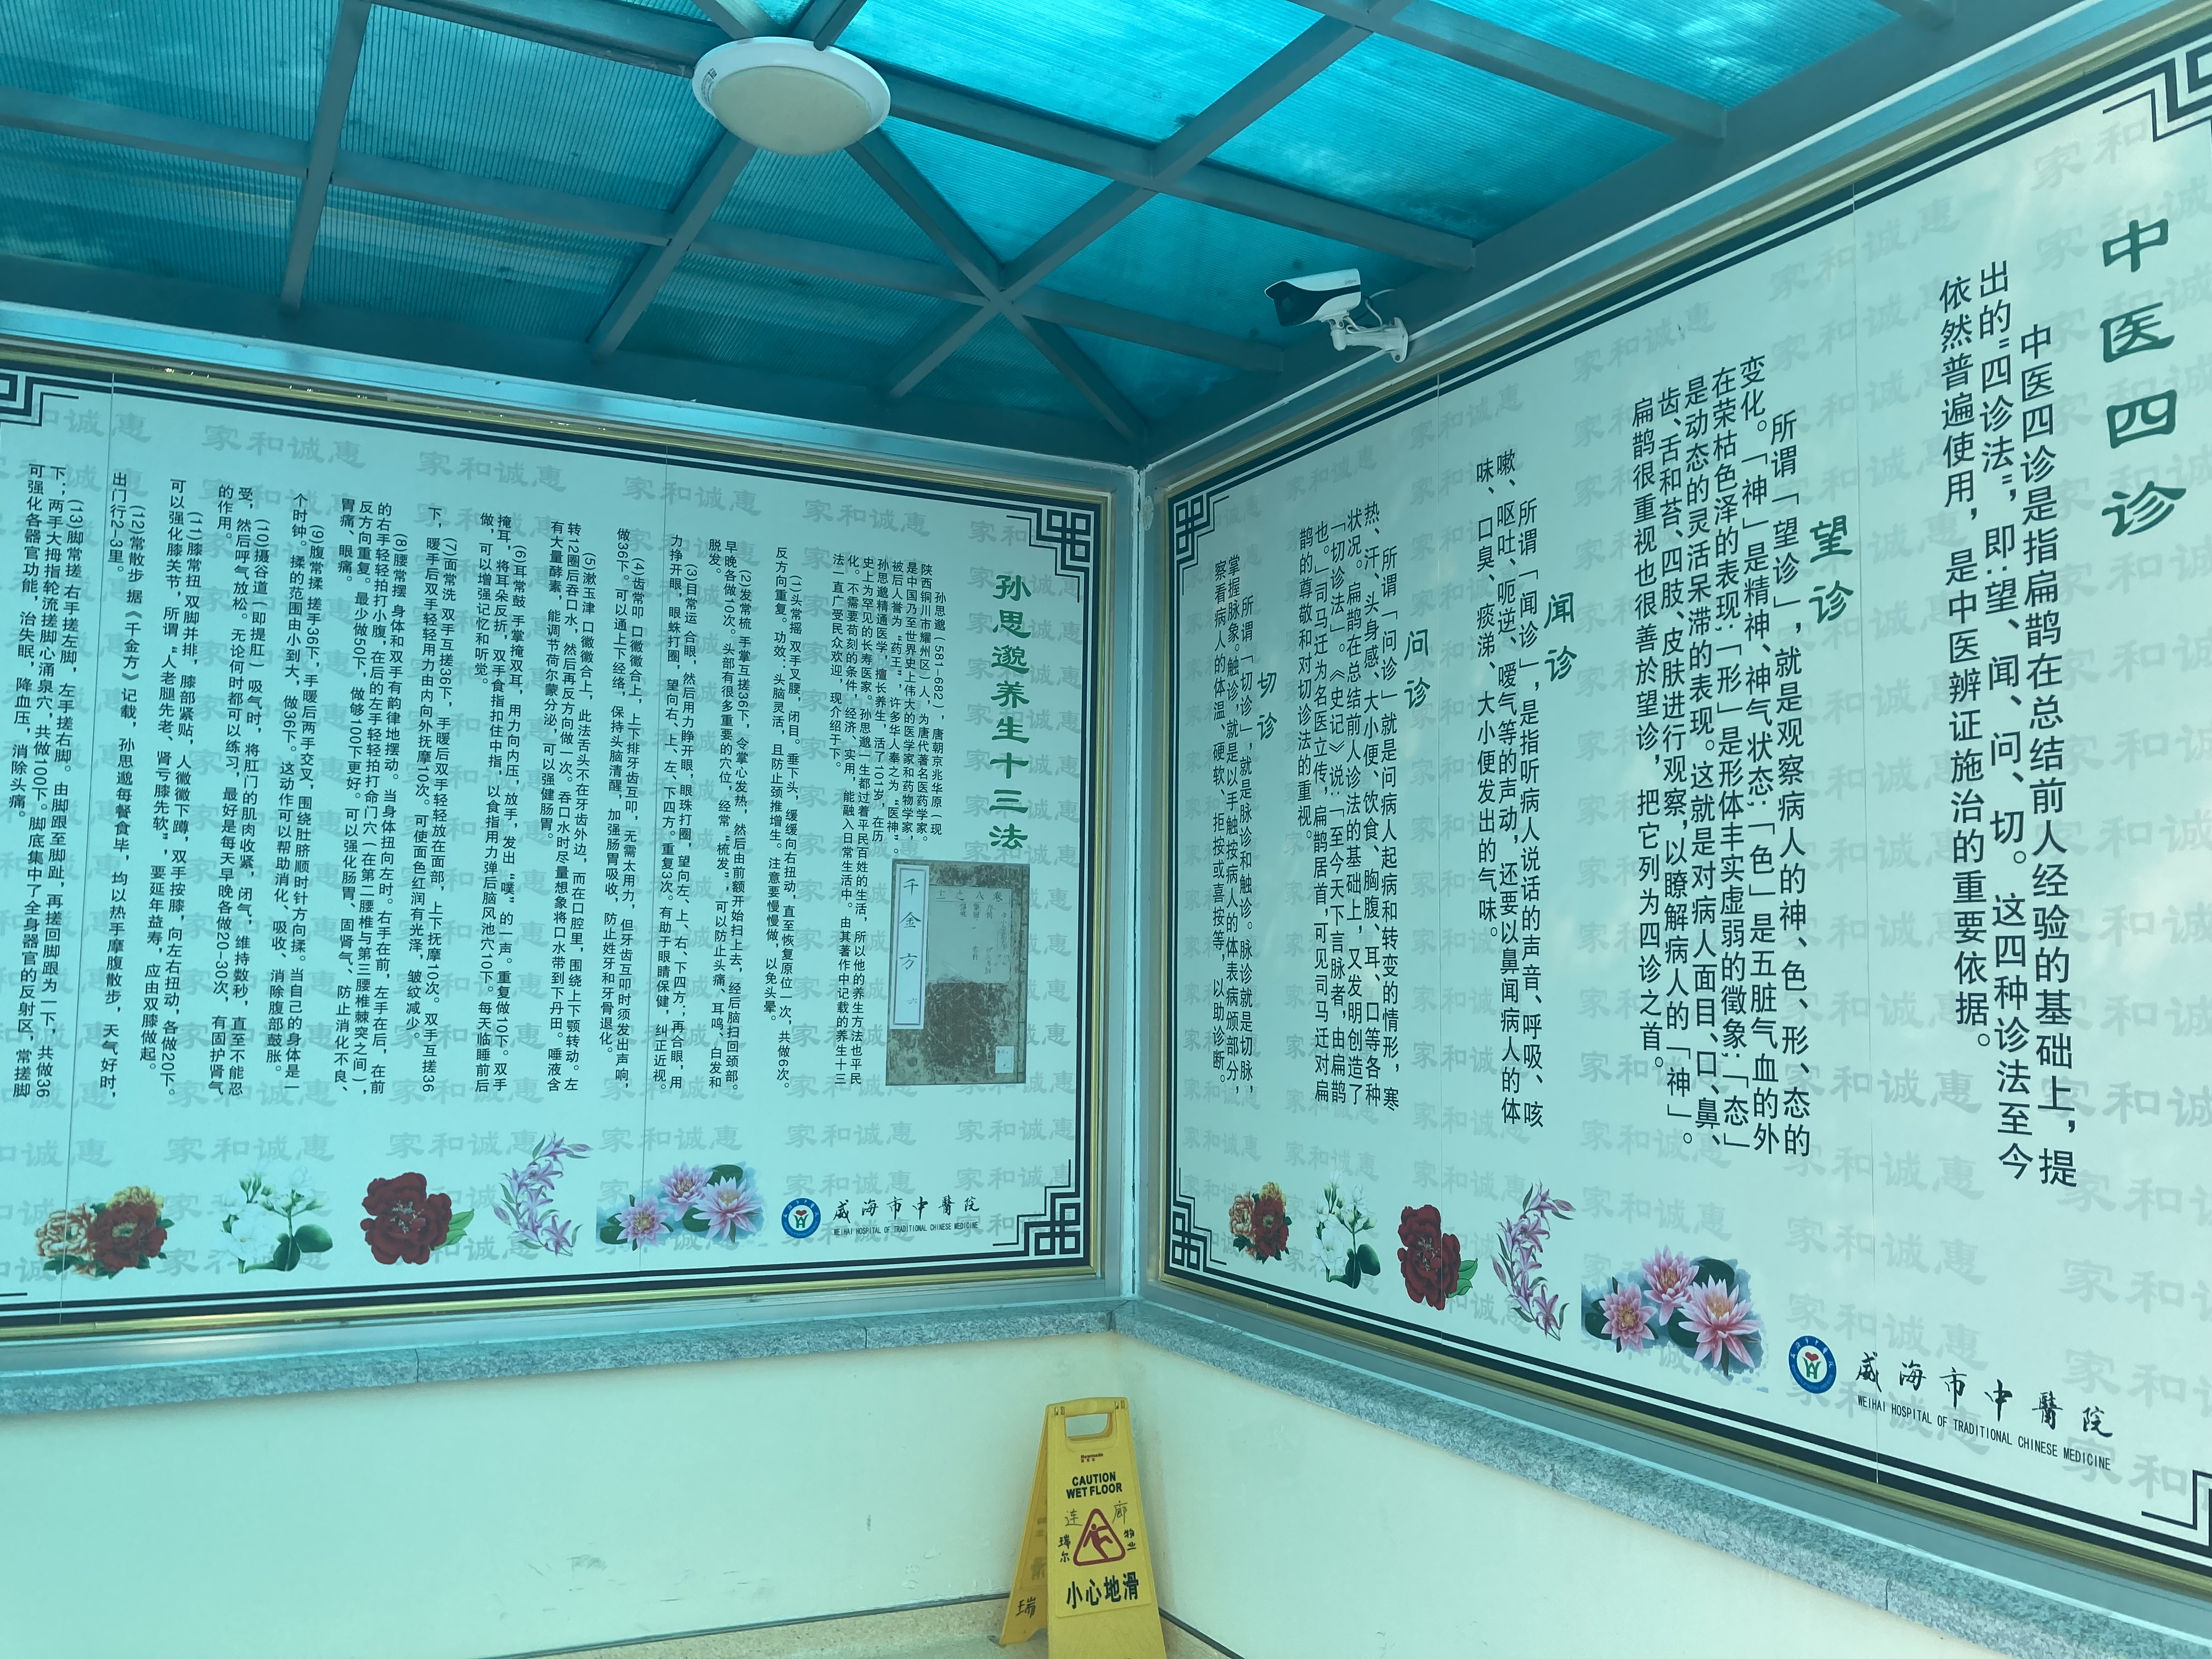 中医四诊
中医四诊是指扁鹊在总结前人经验的基础上，提
出的"四诊法"，即:望、闻、问、切。这四种诊法至今
依然普遍使用，是中医辨证施治的重要依据。
望诊
所谓「望诊」，就是观察病人的神、色、形、态的
变化。「神」是精神、神气状态;「色」是五脏气血的外
在荣枯色泽的表现;「形」是形体丰实虚弱的徵象;「态」
是动态的灵活呆滞的表现。这就是对病人面目、口、鼻、
齿、舌和苔、四肢、皮肤进行观察,以瞭解病人的「神」。
扁鹊很重视也很善於望诊，把它列为四诊之首。
闻诊
所谓「闻诊」，是指听病人说话的声音、呼吸、咳
嗽、呕吐、呃逆、嗳气等的声动，还要以鼻闻病人的体
味、口臭、痰涕、大小便发出的气味。
问诊
所谓「问诊」就是问病人起病和转变的情形，寒
热、汗、头身感、大小便、饮食、胸腹、耳、口等各种
状况。扁鹊在总结前人诊法的基础上，又发明创造了
「切诊法」。《史记》说:「至今天下言脉者，由扁鹊
也。」司马迁为名医立传，扁鹊居首,可见司马迁对扁
鹊的尊敬和对切诊法的重视。
切诊
所谓「切诊」，就是脉诊和触诊。脉诊就是切脉，
掌握脉象。触诊，就是以手触按病人的体表病颁部分，
察看病人的体温、硬软、拒按或喜按等，以助诊断。
威海市中醫院
WEIHAI HOSPITAL OF TRADITIONAL CHINESE MEDICINE
孙思邈养生十三法
孙思邈（581-682），唐朝京兆华原（现
陕西铜川市耀州区）人，为唐代著名医药学家。
是中国乃至世界史上伟大的医学家和药物学家，
被后人誉为"药王"，许多华人奉之为"医神"。
孙思邈精通医学，擅长养生，活了101岁，在历
史上为罕见的长寿医家。孙思邈一生都过着平民百姓的生活，所以他的养生方法也平民
化。不需要苛刻的条件，经济、实用，能融入日常生活中。由其著作中记载的养生十三
法一直广受民众欢迎，现介绍于下。
(1)头常摇 双手叉腰，闭目。垂下头，缓缓向右扭动，直至恢复原位一次，共做6次。
反方向重复。功效：头脑灵活，且防止颈推增生。注意要慢慢做，以免头晕。
(2)发常梳 手掌互搓36下，令掌心发热，然后由前额开始扫上去，经后脑扫回颈部。
早晚各做10次。头部有很多重要的穴位，经常"梳发"，可以防止头痛、耳鸣、白发和
脱发。
(3)目常运 合眼，然后用力睁开眼，眼珠打圈，望向左、上、右、下四方；再合眼，用
力挣开眼，眼蛛打圈，望向右、上、左、下四方。重复3次。有助于眼睛保健，纠正近视。
(4)齿常叩 口徽徽合上，上下排牙齿互叩，无需太用力，但牙齿互叩时须发出声响，
做36下。可以通上下经络，保持头脑清醒，加强肠胃吸收，防止蛀牙和牙骨退化。
(5)漱玉津 口徽徽合上，此法舌头不在牙齿外边，而在口腔里，围绕上下颚转动。左
转12圈后吞口水，然后再反方向做一次。吞口水时尽量想象将口水带到下丹田。唾液含
有大量酵素，能调节荷尔蒙分泌，可以强健肠胃。
(6)耳常鼓 手掌掩双耳，用力向内压，放手，发出"噗"的一声。重复做10下。双手
掩耳，将耳朵反折，双手食指扣住中指，以食指用力弹后脑风池穴10下。每天临睡前后
做，可以增强记忆和听觉。
(7)面常洗 双手互搓36下，手暖后双手轻轻放在面部，上下抚摩10次。双手互搓36
下，暖手后双手轻轻用力由内向外抚摩10次。可使面色红润有光泽，皱纹减少。
(8)腰常摆 身体和双手有韵律地摆动。当身体扭向左时。右手在前，左手在后，在前
的右手轻轻拍打小腹，在后的左手轻轻拍打命门穴（在第二腰椎与第三腰椎棘突之间），
反方向重复。最少做50下，做够100下更好。可以强化肠胃、固肾气、防止消化不良、
胃痛、眼痛。
(9)腹常揉 搓手36下，手暖后两手交叉，围绕肚脐顺时针方向揉。当自己的身体是一
个时钟。揉的范围由小到大，做36下。这动作可以帮助消化、吸收、消除腹部鼓胀。
(10)摄谷道（即提肛）吸气时，将肛门的肌肉收紧，闭气，维持数秒，直至不能忍
受，然后呼气放松。无论何时都可以练习，最好是每天早晚各做20-30次，有固护肾气
的作用。
(11)膝常扭 双脚并排，膝部紧贴，人徽徽下蹲，双手按膝，向左右扭动，各做20下。
可以强化膝关节，所谓"人老腿先老、肾亏膝先软"，要延年益寿，应由双膝做起。
(12)常散步 据《千金方》记载，孙思邈每餐食毕，均以热手摩腹散步，天气好时，
出门行2-3里。
(13)脚常搓 右手搓左脚，左手搓右脚。由脚跟至脚趾，再搓回脚跟为一下，共做36
下；两手大拇指轮流搓脚心涌泉穴，共做100下。脚底集中了全身器官的反射区，常搓脚
可强化各器官功能，治失眠，降血压，消除头痛。
千金方 六
威海市中醫院
WEIHAI HOSPITAL OF TRADITIONAL CHINESE MEDICINE
家和诚惠
CAUTION
WET FLOOR
连廊
瑞尔
物业
小心地滑
瑞